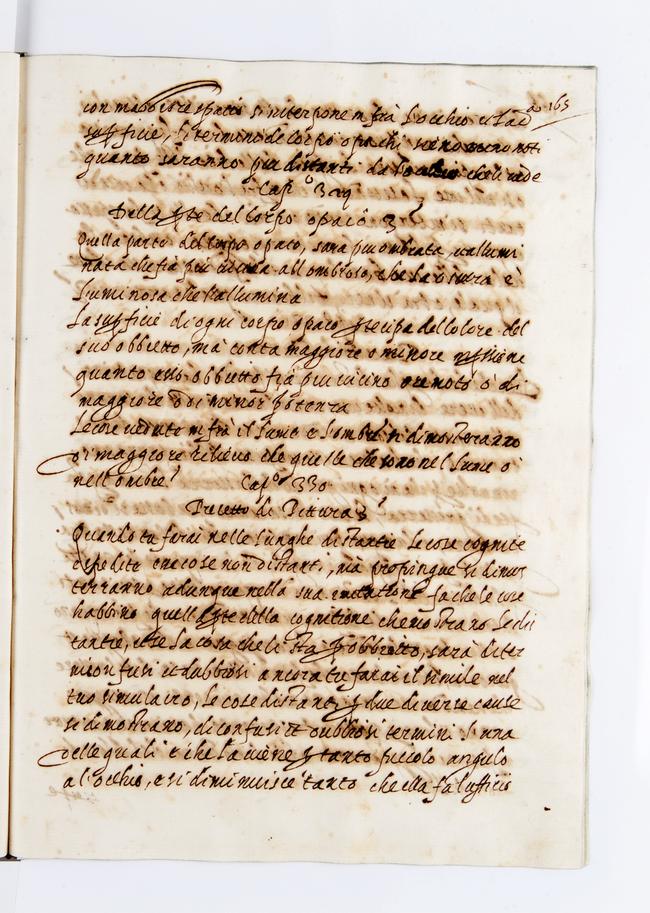 165
con maggiore spatio s'interpone infrà l'occhio e la d.a
superficie, li termini de corpi opachi sieno meno noti
quanto saranno piu distanti da l'occhio che li vede
Cap.o 329
Della pte del Corpo opaco
Quella parte del corpo opaco, sara piu ombrata, o allumi
nata che fia più vicina all ombroso, che la oscura e
Luminosa che l'allumina
La supficie di ogni corpo opaco ptecipa del colore del
suo obbietto, mà con ta maggiore o minore npssione
quanto esso obbietto fia piu vicino o remoto ò di
maggiore ò di minor potenza
Le cose vedute infrà il lume e l'ombre si dimosterāno
di maggiore rilievo che quelle che sono nel lume ò
nell'ombre
Cap.o 330
Precetto di Pittura
Quando tu farai nelle lunghe distantie le cose cognite
espedite come cose non distanti, mà propinque si dimos
terranno adunque nella sua imitatione fa che le cose
habbino quella pte della cognitione che mostrano le dis
tantie, e se la cosa che ti sta p obbietto, sarà di ter
mi confusi et dubbiosi ancora tu farai il simile nel
tuo simulacro, le cose distanti p due diverse cause
si dimostrano, di confusi et dubbiosi termini l'una
delle quali è che la viene p tanto piccolo angulo
al'occhio, e si diminuisce tanto che ella fa l'uffitio